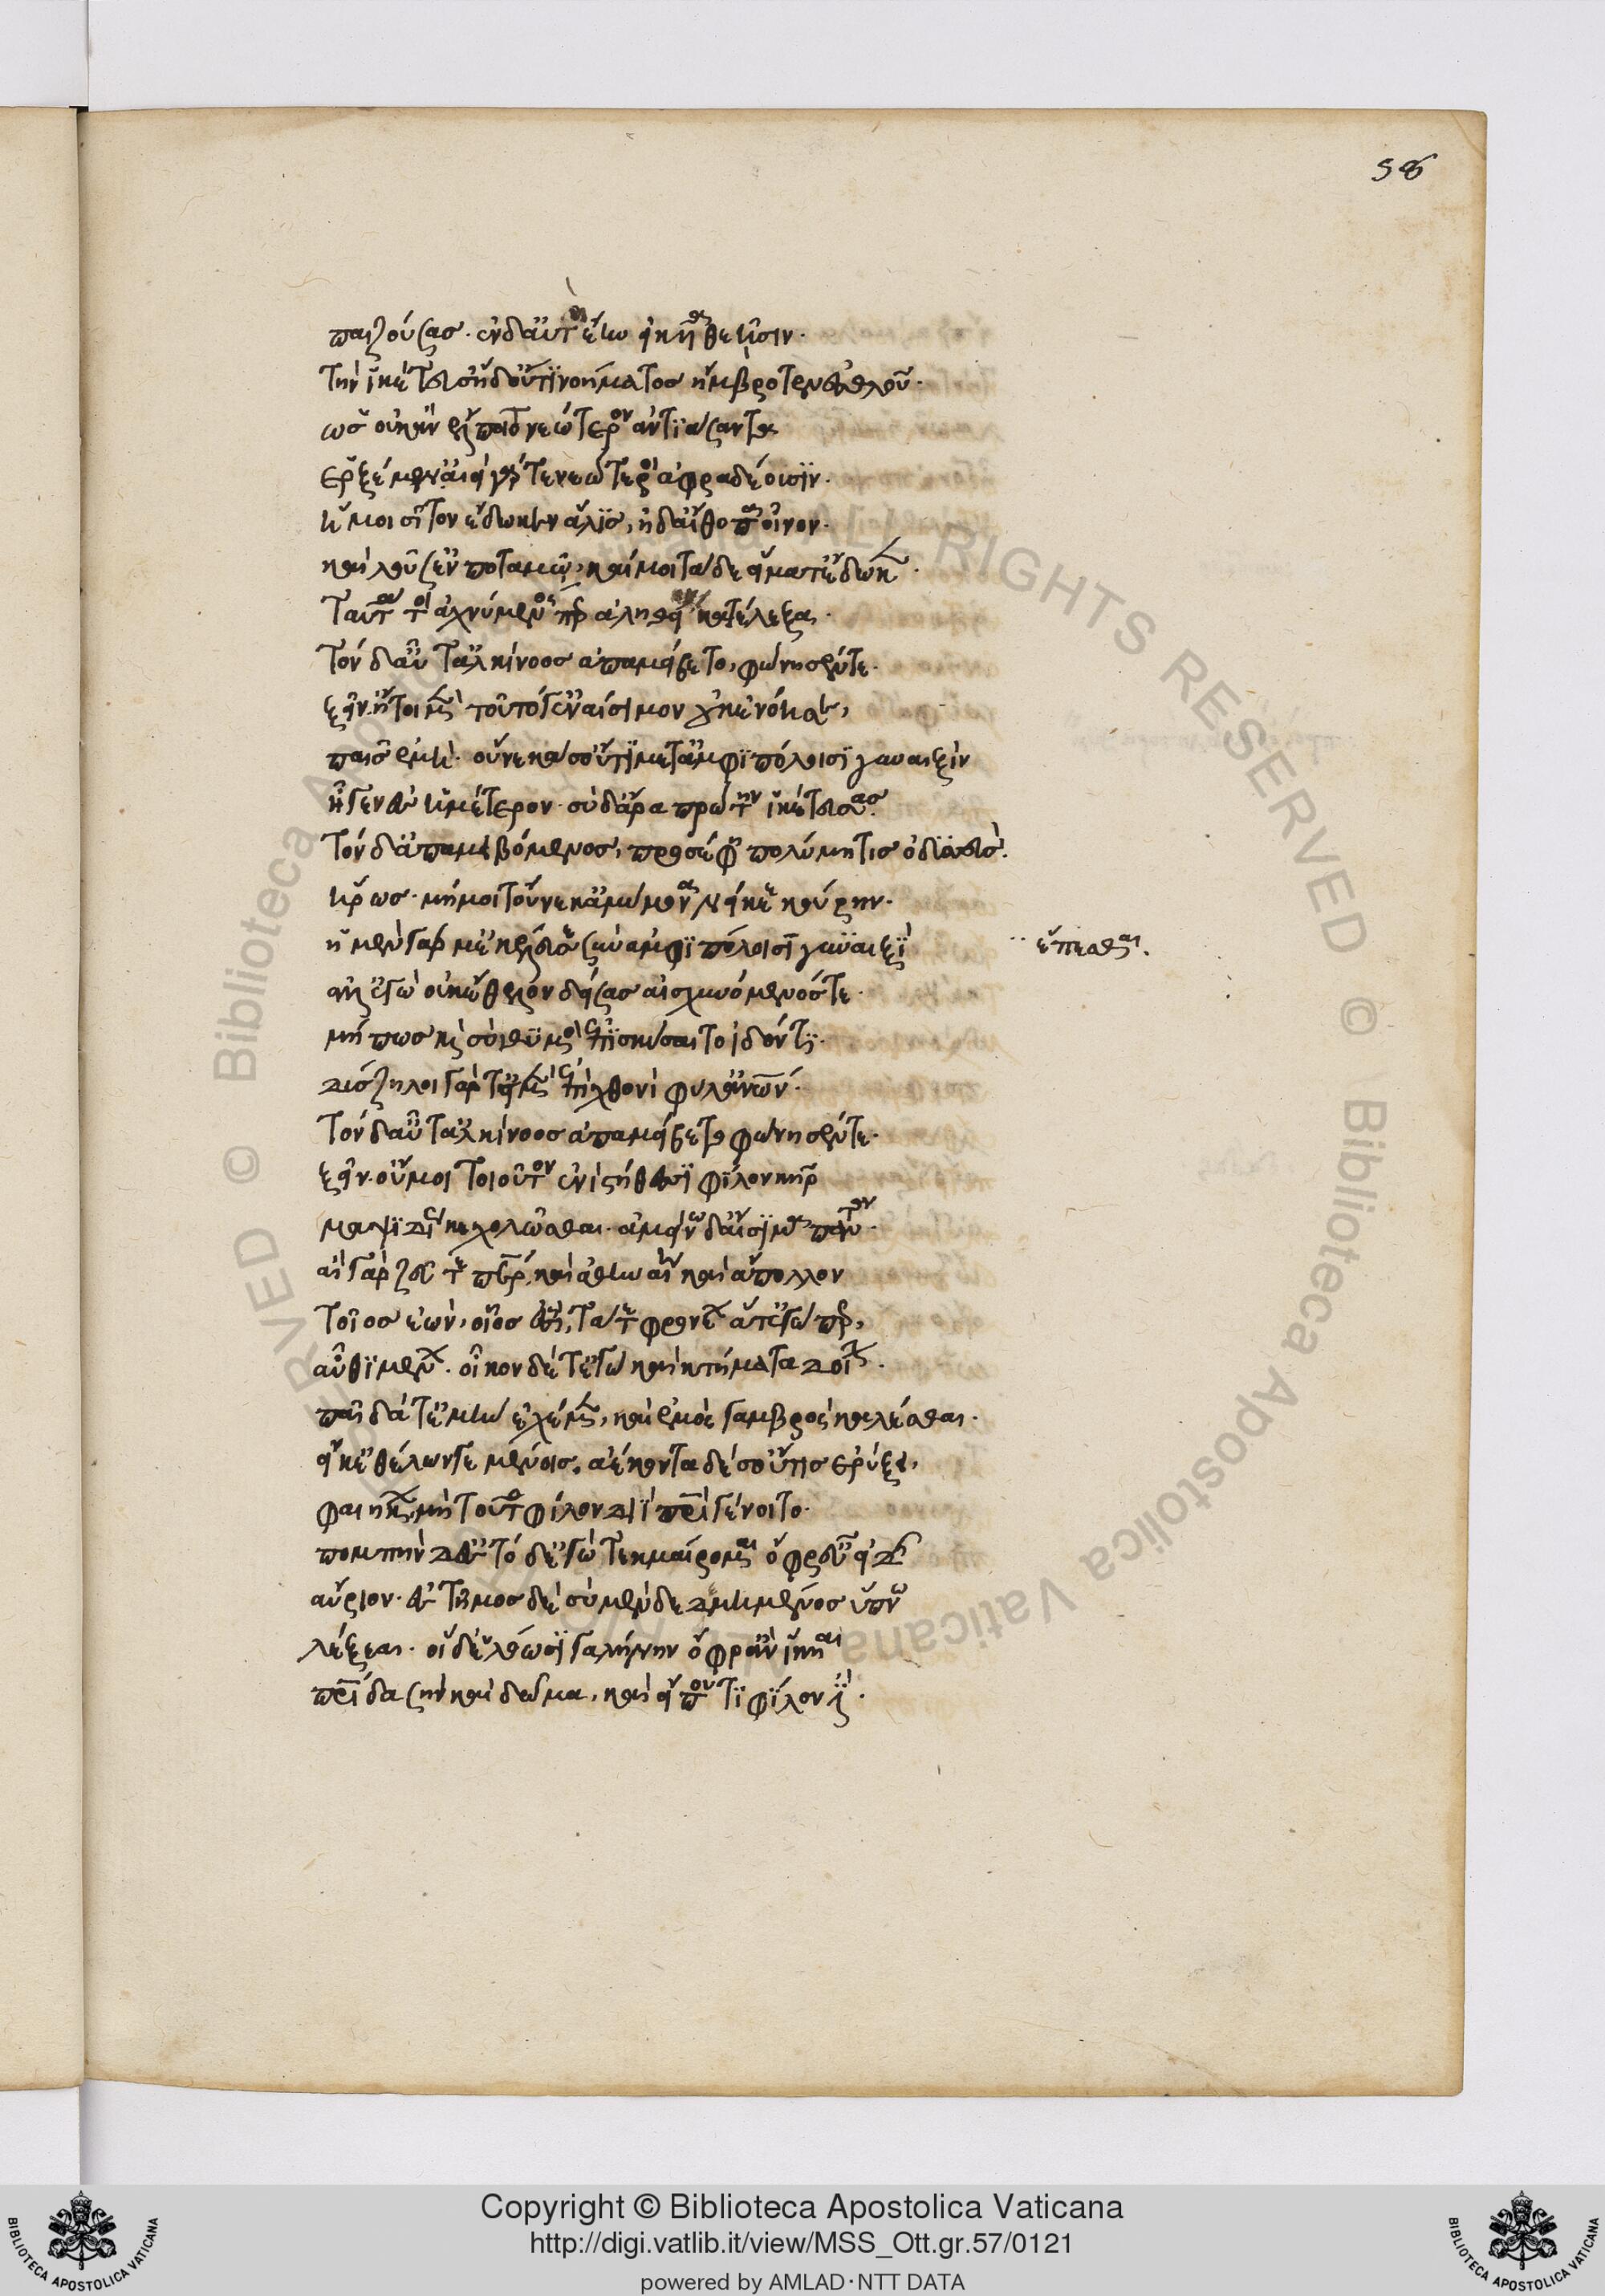 58
παιζούσας· ἐν δ' αὐτὴ ἔην εἰκυῖα θεῆσιν·
τὴν ἱκέτευσ' ἡ δ' οὔτι νοήματος ἤμβροτεν ἐσθλοῦ·
ὡς οὐκ ἂν ἔλποιο νεώτερον ἀντιάσαντα
ἐρξέμεν· αἰεὶ γάρ τε νεώτεροι ἀφραδέουσιν·
ἥ μοι σῖτον ἔδωκεν ἅλις, ἠδ' αἴθοπα οἶνον·
καὶ λοῦσ' ἐν ποταμῶ, καί μοι τάδε εἵματ' ἔδωκεν·
ταῦτά τοι ἀχνύμενός περ ἀληθείην κατέλεξα·
τὸν δ' αὖτ' ἀλκίνοος ἀπαμείβετο, φώνησέν τε·
ξεῖν' ἤτοι μὲν τοῦτό γ' ἐναίσιμον οὐκ ἐνόησεν,
παῖς ἐμή· οὕνεκά σ' οὔτι μετ' ἀμφιπόλοισι γυναιξὶν
ἦγεν ἐς ἡμέτερον· σὺ δ' ἄρα πρώτην ἱκέτευσας·
τὸν δ' ἀπαμειβόμενος, προσέφη πολύμητις ὀδυσσεύς·
ἥρως· μή μοι τοὔνεκ' ἀμύμονα νείκεε κούρην·
ἡ μὲν γάρ μ' ἐκέλευε σὺν ἀμφιπόλοισι γυναιξὶ
·· ἕπεσθαι.
ἀλλ' ἐγὼ οὐκ ἔθελον δείσας αἰσχυνόμενός τε·
μή πως καὶ σοὶ θυμὸς ἐπισκύσαιτο ἰδόντι·
δύσζηλοι γάρ τ' εἰμὲν ἐπὶ χθονὶ φῦλ' ἀνθρώπων·
τὸν δ' αὖτ' ἀλκίνοος ἀπαμείβετο φώνησέν τε·
ξεῖν' οὔ μοι τοιοῦτον ἐνὶ στήθεσι φίλον κῆρ
μαψιδίως κεχολῶσθαι· ἀμείνω δ' αἴσιμα πάντα·
αἲ γὰρ ζεῦ τε πάτερ, καὶ ἀθηναίη καὶ ἄπολλον
τοῖος ἐὼν, οἷος ἐσσὶ, τά τε φρονέων ἅ τ' ἐγώ περ,
αὖθι μένων· οἶκον δέ τ' ἐγὼ καὶ κτήματα δοίην·
παῖδά τ' ἐμὴν ἐχέμεν, καὶ ἐμὸς γαμβρὸς καλέεσθαι·
εἴ κ' ἐθέλων γε μένοις, ἀέκοντα δέ σ' οὔτις ἐρύξει,
φαιήκων, μὴ τοῦτο φίλον διὶ πατρὶ γένοιτο·
πομπὴν δ' ἐς τόδ' ἐγὼ τεκμαίρομαι ὄφρ' εὖ εἰδῆς
αὔριον· ἐς τῆμος δὲ σὺ μὲν δεδμημένος ὕπνω
λέξεαι· οἱ δ' ἐλόωσι γαλήνην ὄφρ' ἂν ἵκηαι
πατρίδα σὴν καὶ δῶμα, καὶ εἴ πού τι φίλον ἐστί·
Copyright © Biblioteca Apostolica Vaticana
http://digi.vatlib.it/view/MSS_Ott.gr.57/0121
powered by AMLAD·NTT DATA